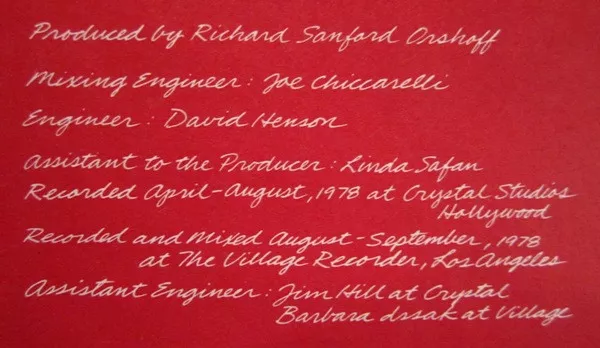 Produced by Richard Sanford Orshoff
Mixing Engineer: Joe Chiccarelli
Engineer: David Henson
Assistant to the Producer: Linda Safan
Recorded April-August, 1978 at Crystal Studios
Hollywood
Recorded and Mixed August-September, 1978
at The Village Recorder, Los Angeles
Assistant Engineer: Jim Hill at Crystal
Barbara Issak at Village